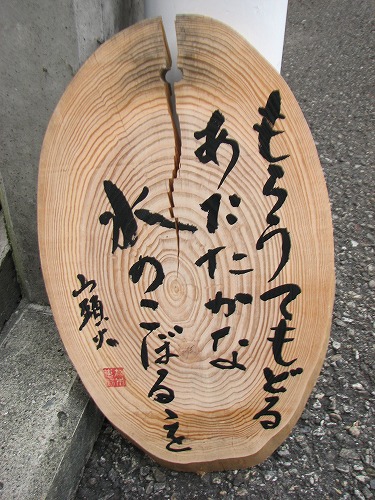 もらうてもどる
あたたかな
水のこぼるを
山頭火